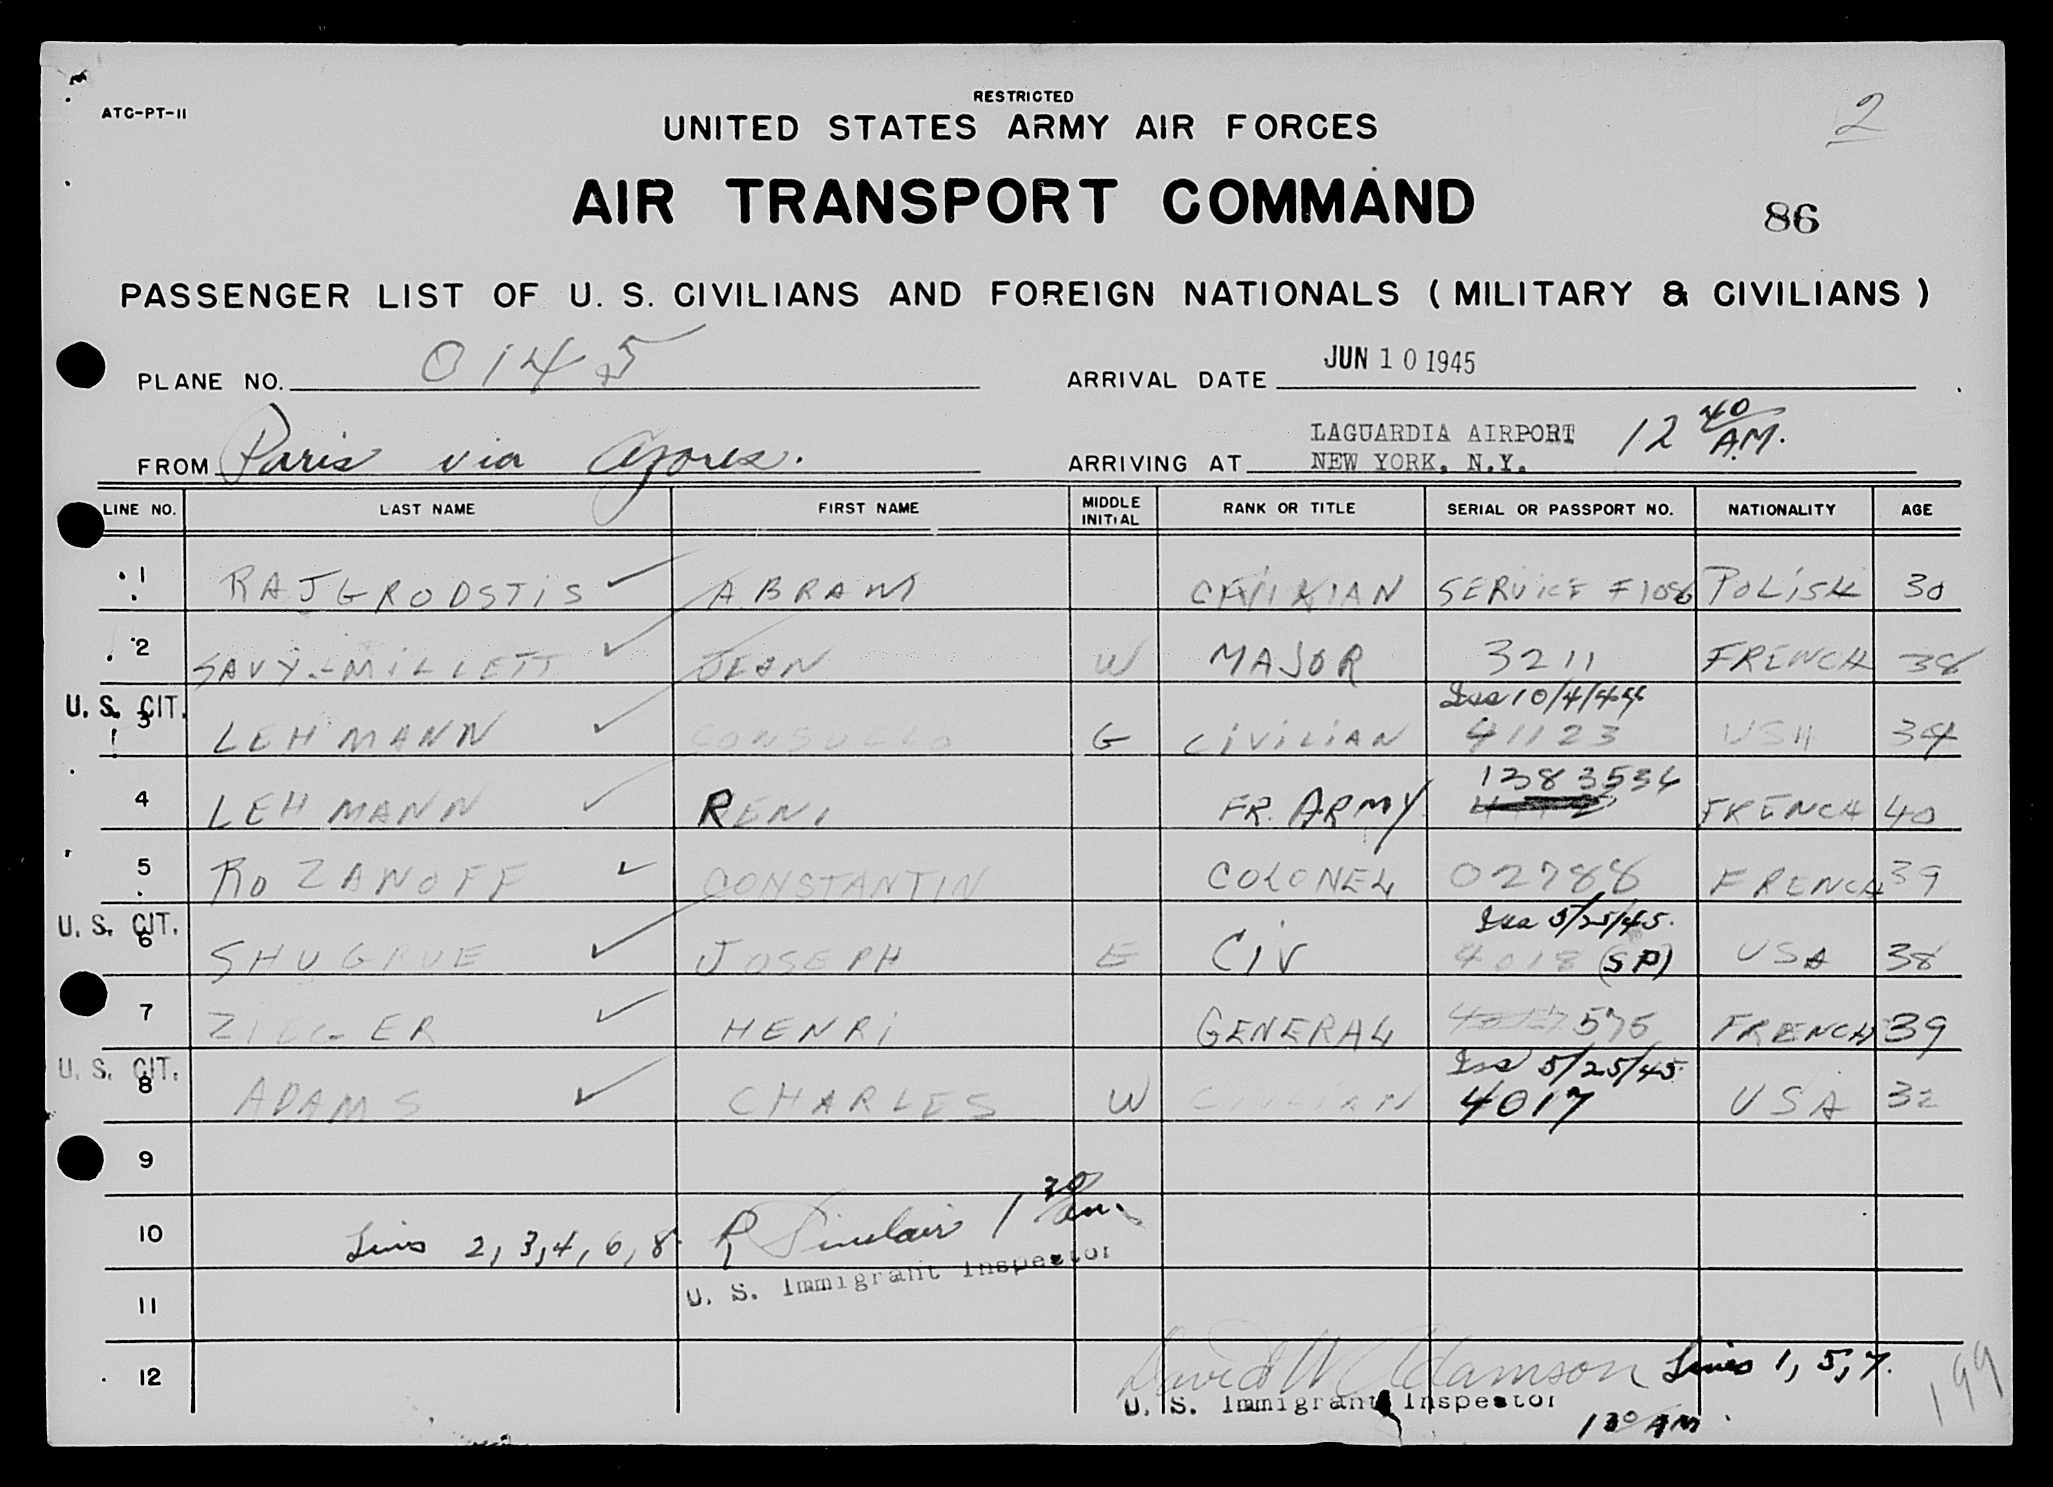 RESTRICTED
ATC-PT-11
UNITED STATES ARMY AIR FORCES
2
AIR TRANSPORT COMMAND
86
PASSENGER LIST OF U. S. CIVILIANS AND FOREIGN NATIONALS ( MILITARY & CIVILIANS )
PLANE NO. 0145 ARRIVAL DATE JUN 10 1945
FROM Paris via Azores. ARRIVING AT LAGUARDIA AIRPORT NEW YORK, N.Y. 12 40 A.M.
LINE NO. LAST NAME FIRST NAME MIDDLE INITIAL RANK OR TITLE SERIAL OR PASSPORT NO. NATIONALITY AGE
1 RAJGRODSTIS ABRAM CIVILIAN SERVICE #1086 POLISH 30
2 SAVY-MILLETT JEAN W MAJOR 3211 FRENCH 38
U. S. CIT. 3 LEHMANN CONSUELO G CIVILIAN Iss 10/4/44 41123 USA 34
4 LEHMANN RENI FR. ARMY 1383534 FRENCH 40
5 ROZANOFF CONSTANTIN COLONEL 02788 FRENCH 39
U. S. CIT. 6 SHUGRUE JOSEPH E CIV Iss 5/25/45. 4018 (SP) USA 38
7 ZIEGLER HENRI GENERAL 576 FRENCH 39
U. S. CIT. 8 ADAMS CHARLES W CIVILIAN Iss 5/25/45 4017 USA 32
9
10 Lines 2, 3, 4, 6, 8 R Sinclair 1 30 am.
U. S. Immigrant Inspector
11
12 David W Adamson Lines 1, 5, 7.
U. S. Immigrant Inspector
1 30 AM.
199